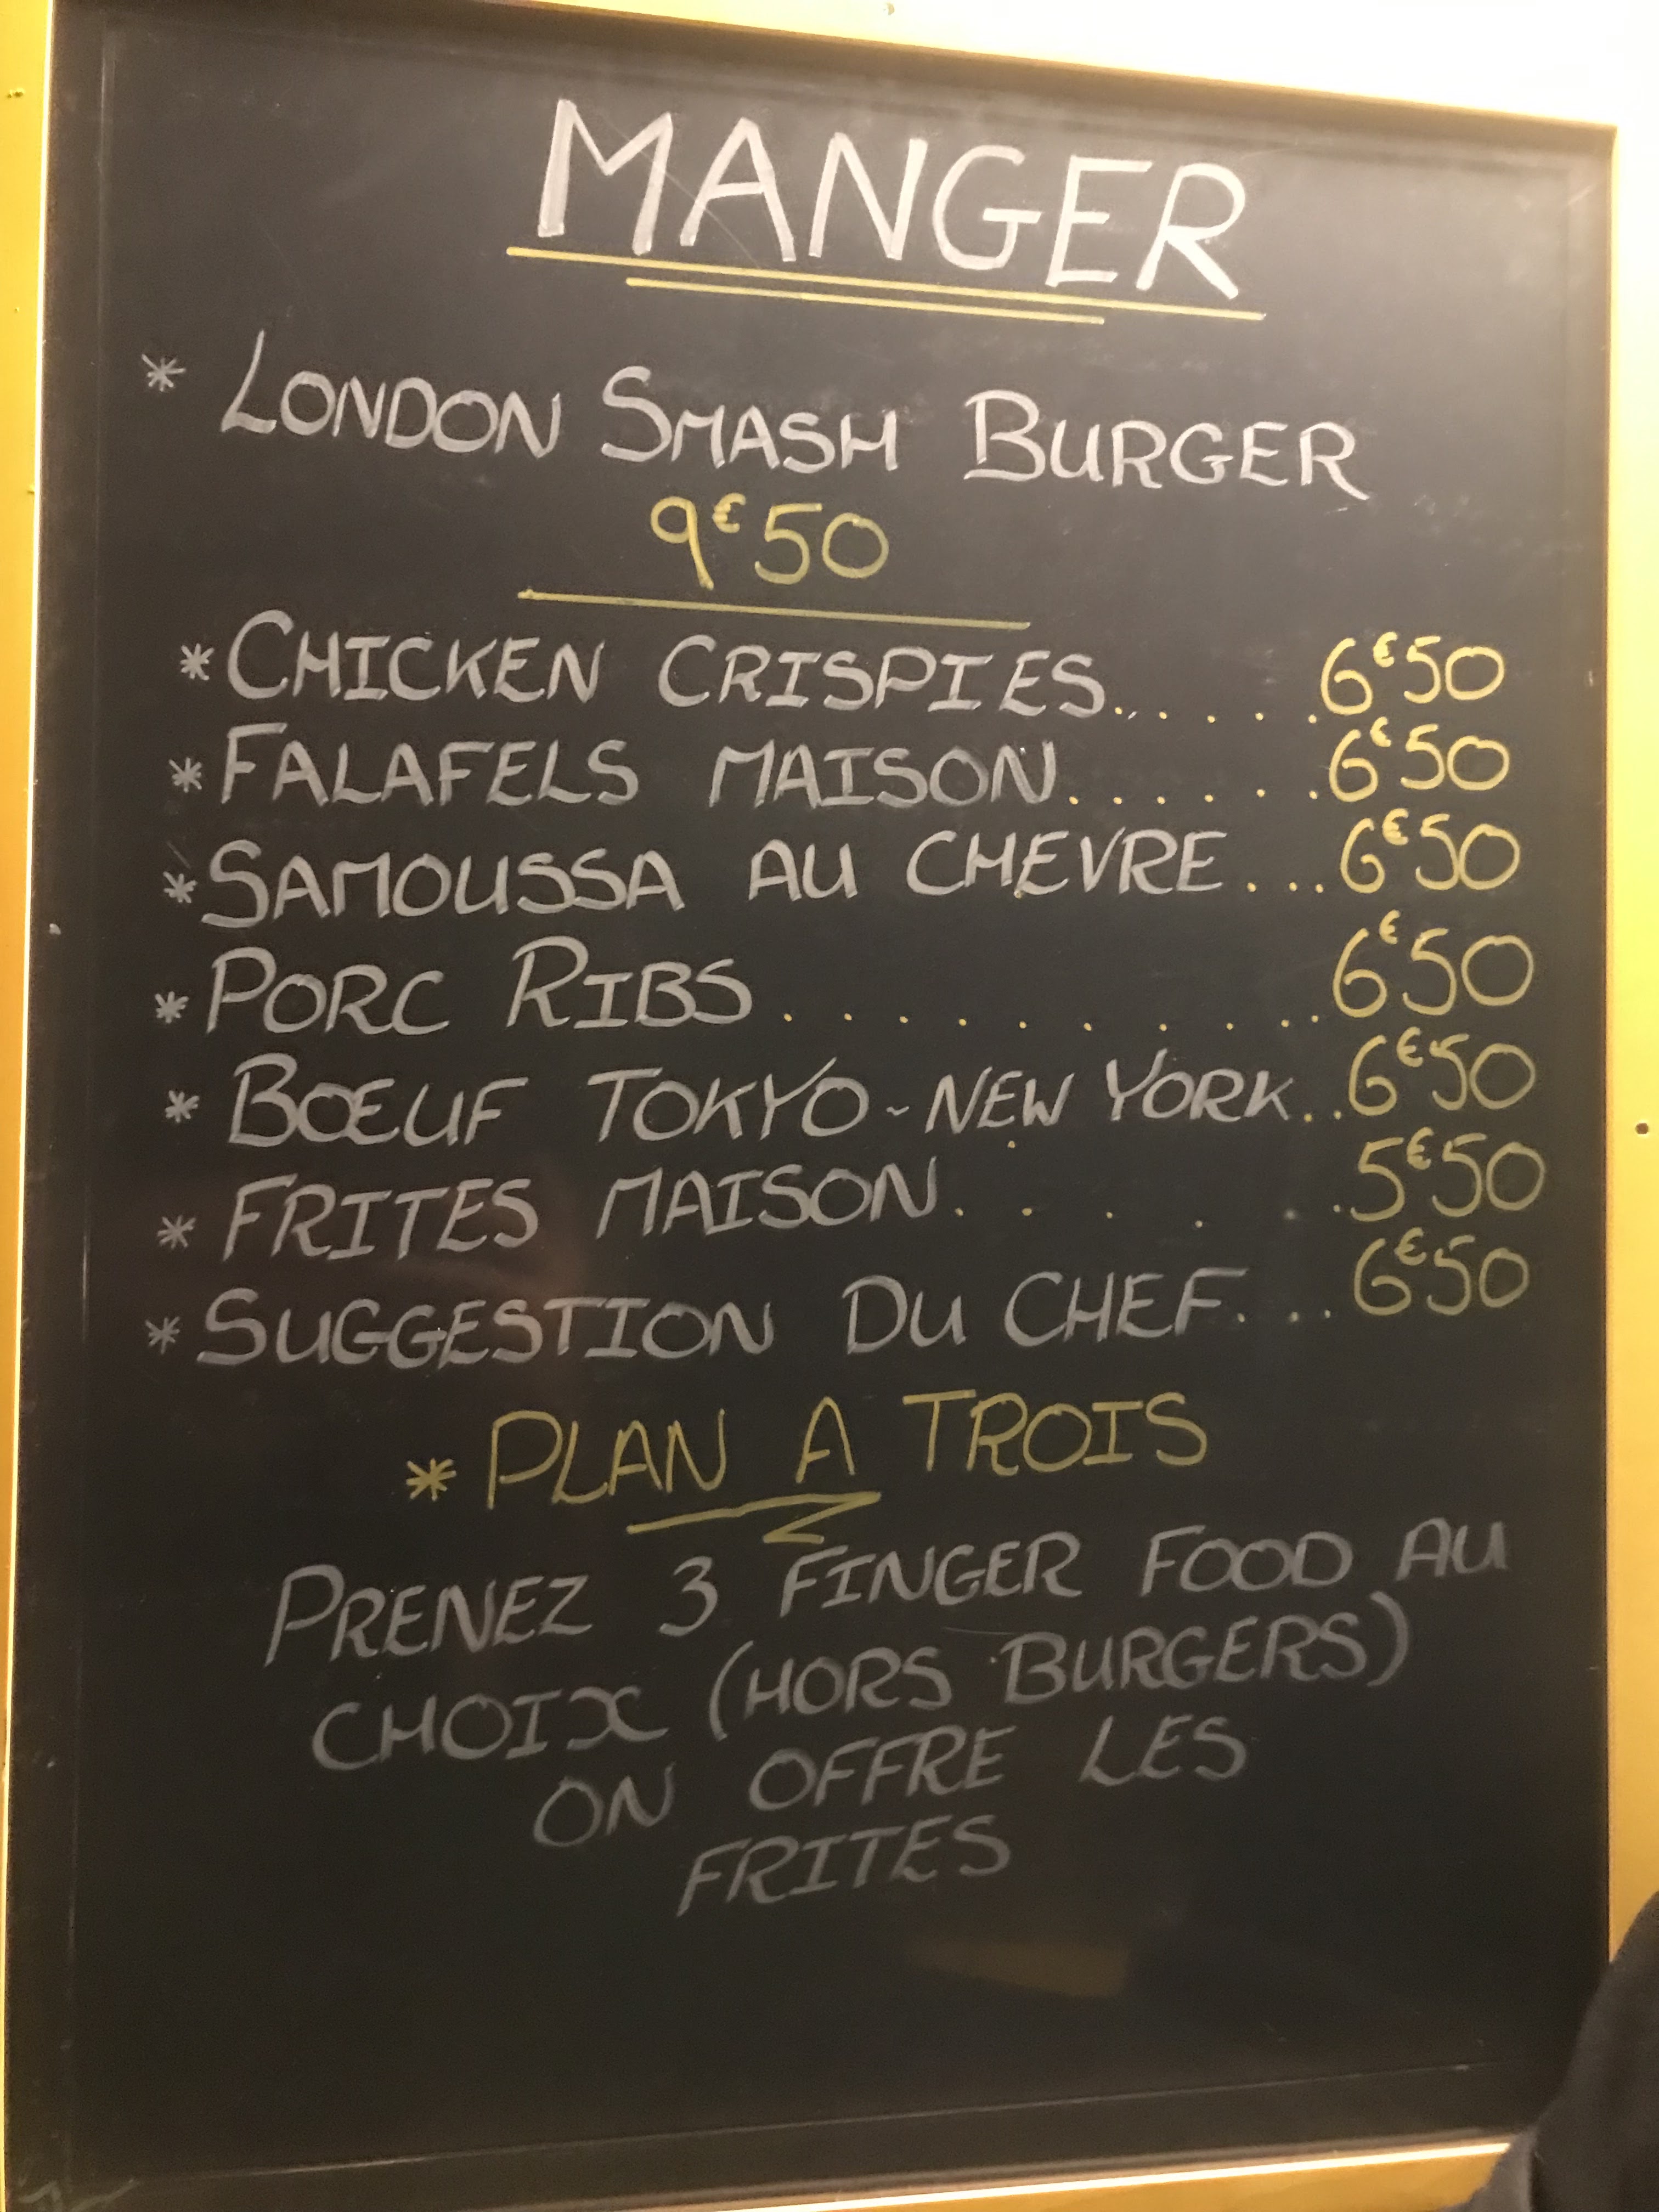 MANGER
* LONDON SMASH BURGER
9€50
* CHICKEN CRISPIES.......6€50
* FALAFELS MAISON......6€50
* SAMOUSSA AU CHEVRE....6€50
* PORC RIBS..........6€50
* BŒUF TOKYO-NEW YORK..6€50
* FRITES MAISON......5€50
* SUGGESTION DU CHEF....6€50
* PLAN A TROIS
PRENEZ 3 FINGER FOOD AU
CHOIX (HORS BURGERS)
ON OFFRE LES
FRITES